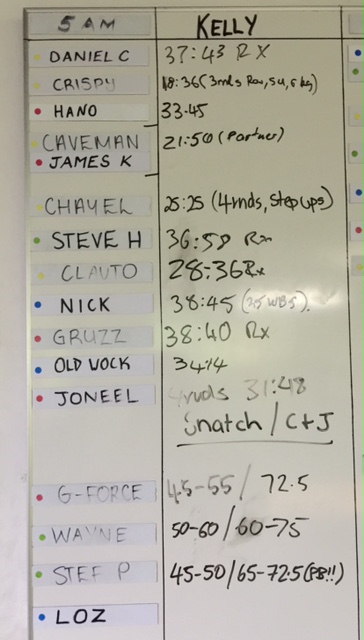 5 AM KELLY
DANIEL C 37:43 RX
CRISPY 18:36 (3rnds Row, SU,
HANO 33.45
CAVEMAN 21:50 (Partner)
JAMES K
CHAYEL 25:25 (4rnds, Step ups)
STEVE H 36:50 Rx
CLAUTO 28:36 Rx
NICK 38:45 (25 WBS).
GRUZZ 38:40 Rx
OLD WOCK 34:14
JONEEL 4rnds 31:48
Snatch / C+J
G-FORCE 45-55 / 72.5
WAYNE 50-60 / 60-75
STEF P 45-50 / 65-72.5 (PB!!)
LOZ